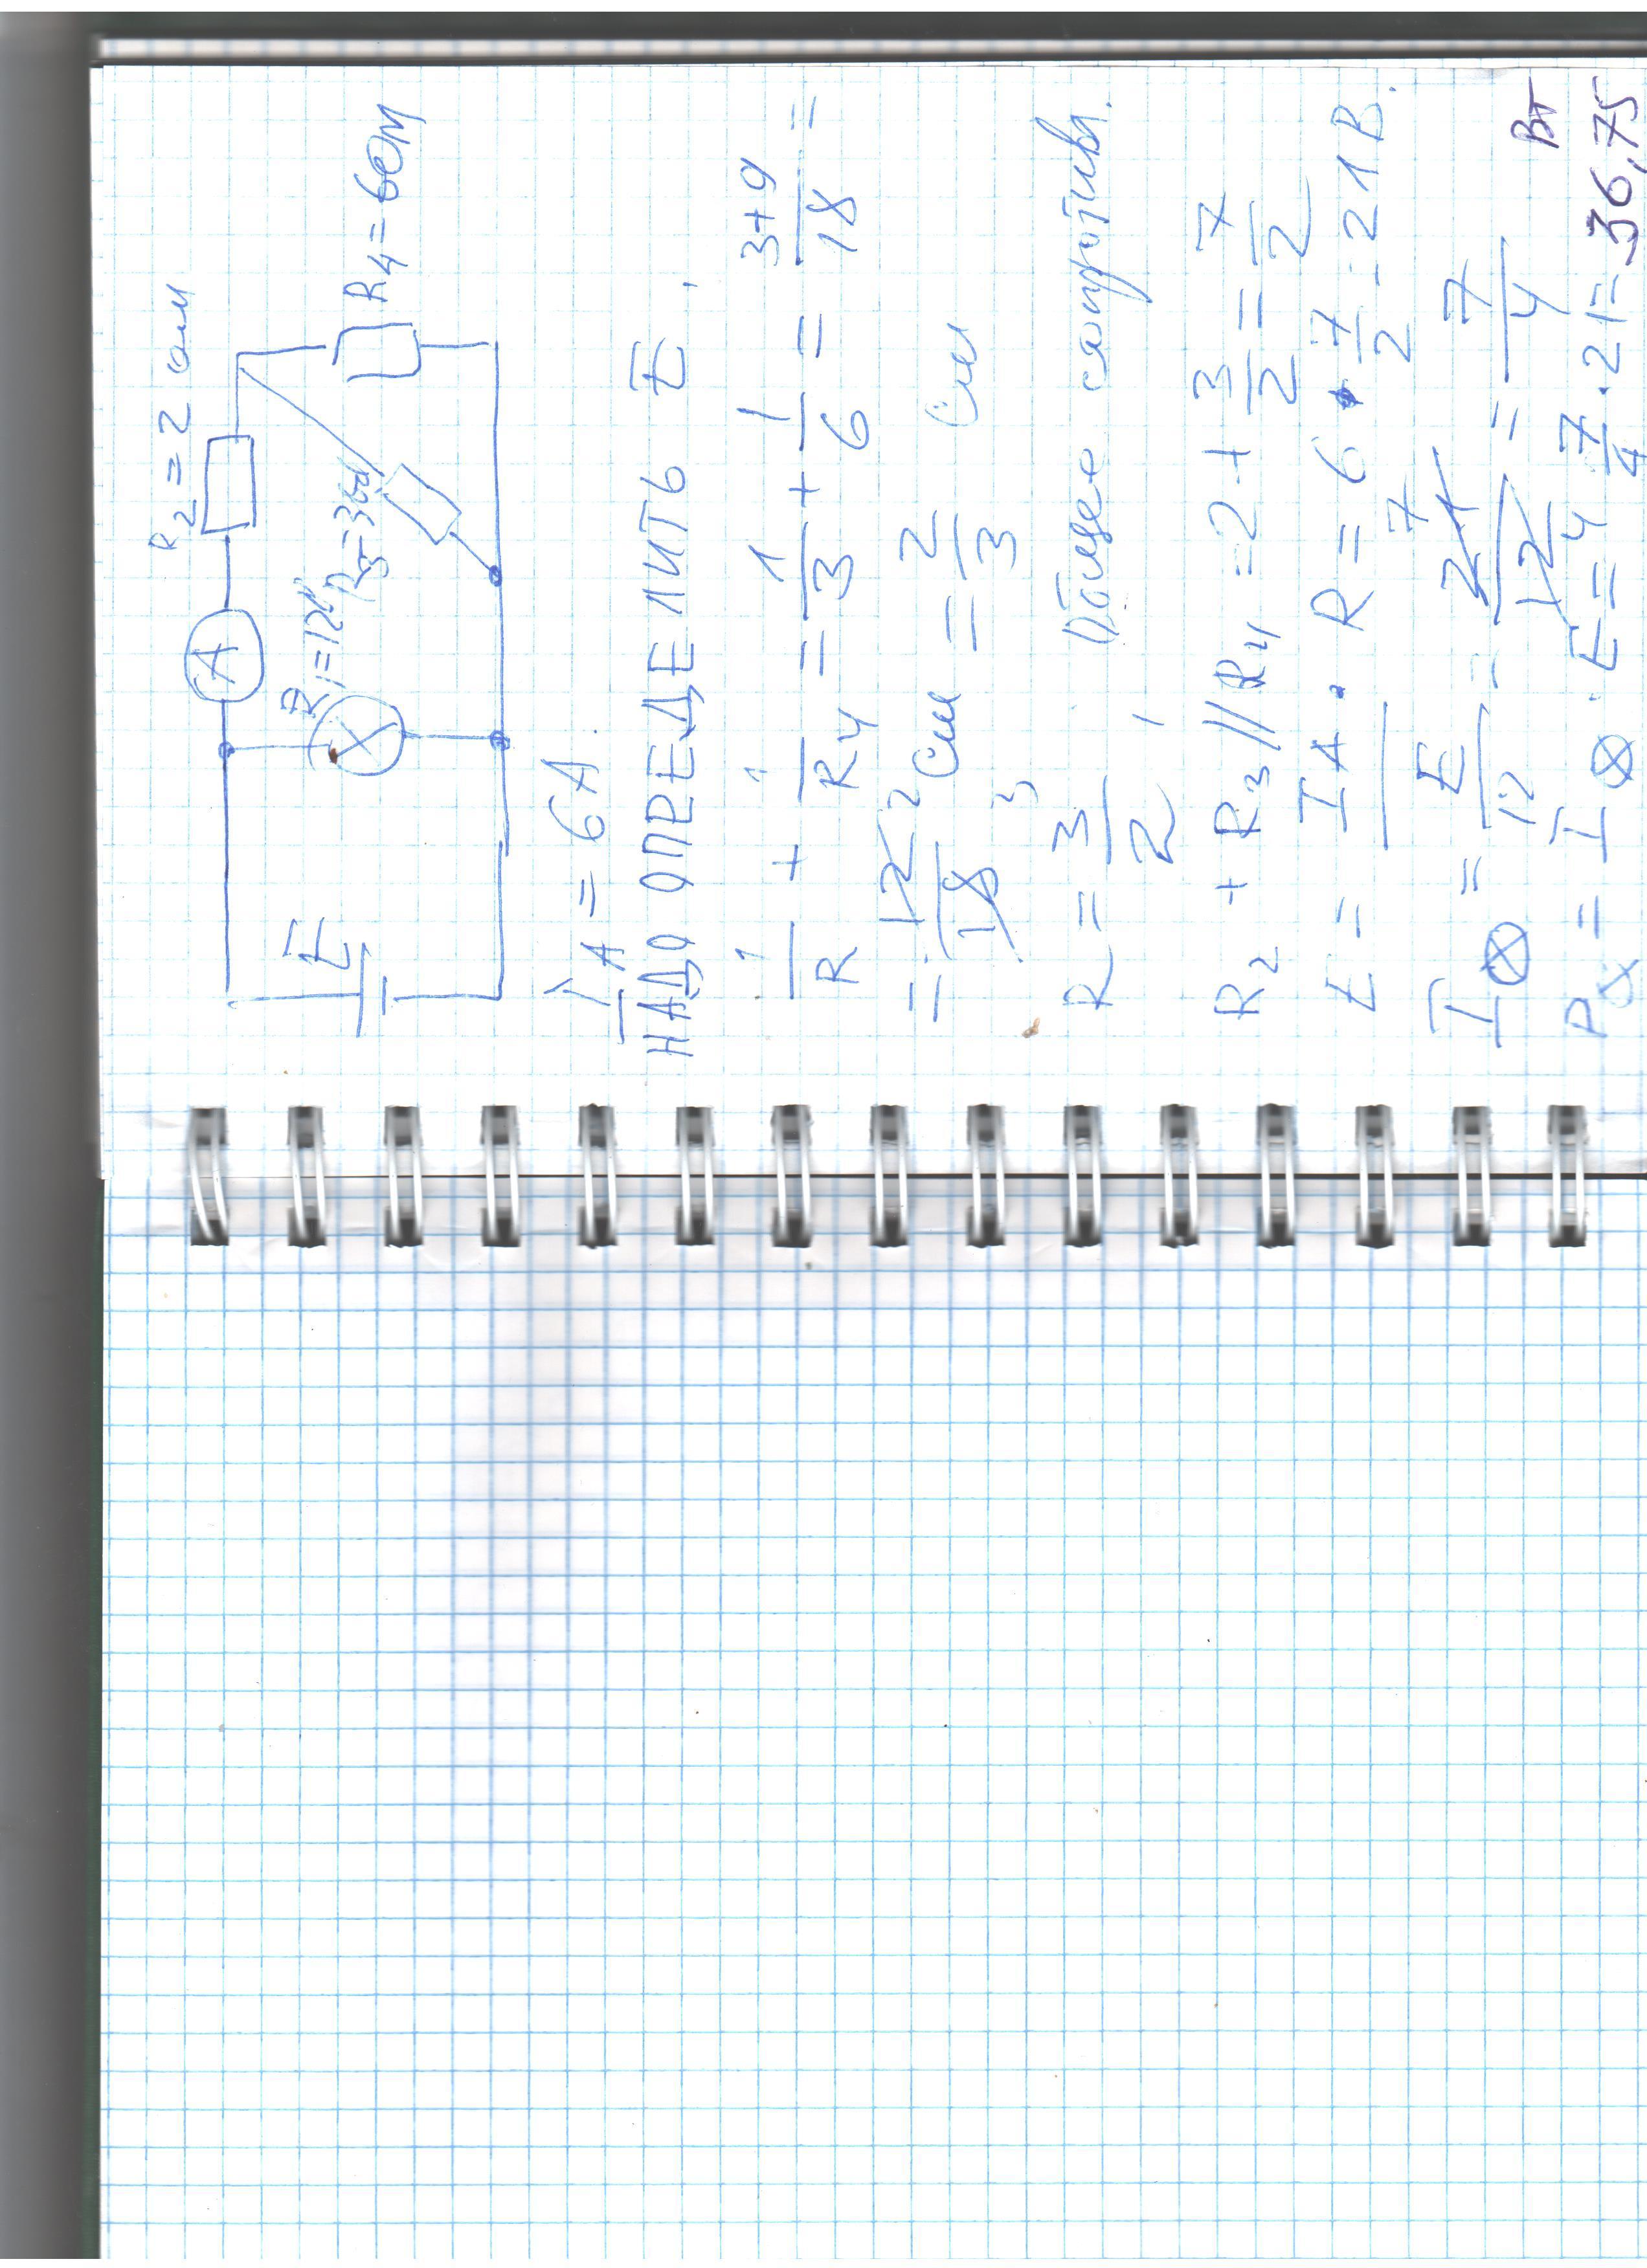 R2=2 ом
A
R1=12
R3=3ом
R4=6ОМ
E
IA=6A
НАДО ОПРЕДЕЛИТЬ E.
1/R + 1/R4 = 1/3 + 1/6 = 3+9/18 =
= 12/18 2/3 См = 2/3 См
R = 3/2, Общее сопротивл.
R2 + R3//R4 = 2 + 3/2 = 7/2
E = IA · R = 6 · 7/2 = 21 В.
I⊗ = E/12 = 21/12 = 7/4
P⊗ = I⊗ · E = 7/4 · 21 = 36,75 Вт